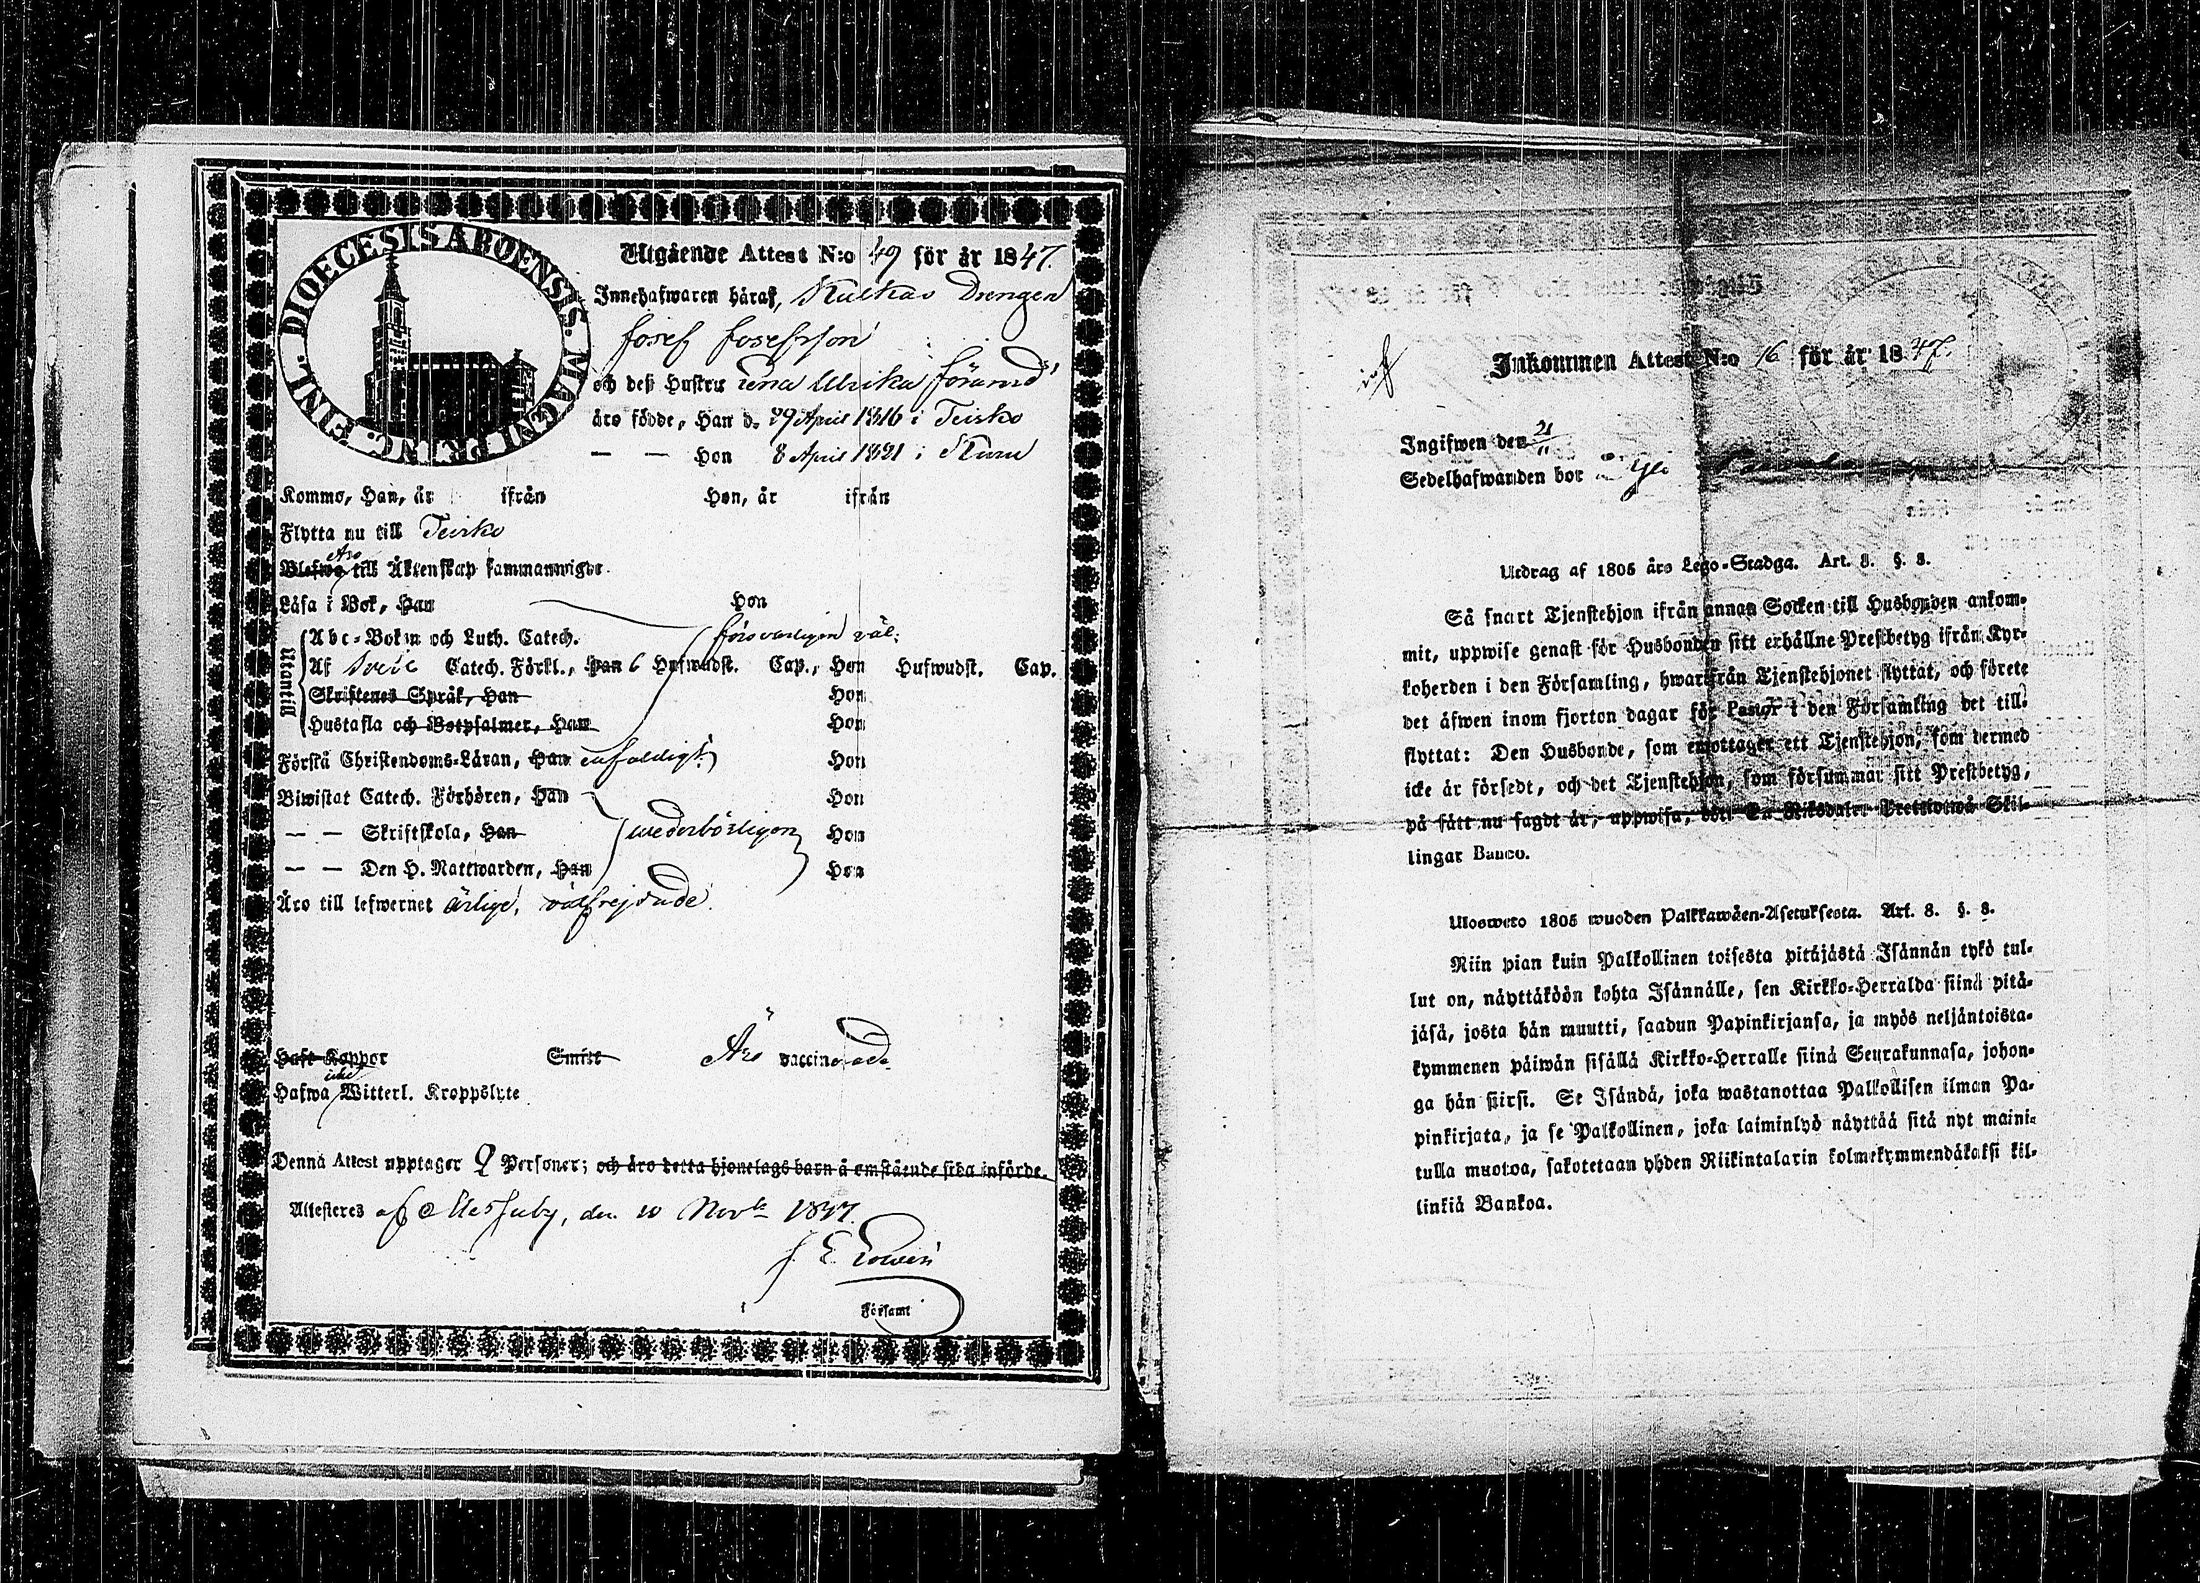 DIOECESIS ABOENSIS. MAGNI PRINC. FINL.
Utgående Attest N:o 49 för år 1847.
Innehafwaren häraf, Kulkas Drengen
Josef Josefsson
och deß Hustru Lena Ulrika
äro födde, Han d. 29 April 1816 i Teisko
— — Hon 8 April 1821 i
Kommo, Han, år ifrån Hon, år ifrån
Flytta nu till Teisko
Äro
Blefwo till Äktenskap sammanwigde.
Läsa i Bok, Han Hon
försvarligen väl.
Utantill
Abc-Boken och Luth. Catech.
Af Svebe Catech. Förkl., Han 6 Hufwudst. Cap., Hon Hufwudst. Cap.
Skriftenes Språk, Han Hon
Hustafla och Botpsalmer, Han Hon
Förstå Christendoms-Läran, Han enfaldigt. Hon
Biwistat Catech. Förhören, Han Hon
— — Skriftskola, Han wederbörligen Hon
— — Den H. Nattwarden, Han Hon
Äro till lefwernet ärlige, välfrejdade.
Haft Koppor Smitt Äro vaccinerade
icke
Hafwa Witterl. Kroppslyte
Denna Attest upptager 2 Personer; och äro detta hjonelags barn å omstående sida införde.
Attesteras af Messuby, den 10 Novbr 1847.
J. E.
i Församl
Inkommen Attest N:o 16 för år 1847.
Ingifwen den 21/11
Sedelhafwanden bor
Utdrag af 1805 års Lego-Stadga. Art. 8. §. 8.
Så snart Tjenstehjon ifrån annan Socken till Husbonden ankom-
mit, uppwise genast för Husbonden sitt erhållne Prestbetyg ifrån Kyr-
koherden i den Församling, hwarifrån Tjenstehjonet flyttat, och förete
det äfwen inom fjorton dagar för Pastor i den Församling det till-
flyttat: Den Husbonde, som emottager ett Tjenstehjon, som dermed
icke är försedt, och det Tjenstehjon, som försummar sitt Prestbetyg,
på sätt nu sagdt är, uppwisa, böte En Riksdaler Trettiotwå Skil-
lingar Banco.
Ulosweto 1805 wuoden Palkkawäen-Asetuksesta. Art. 8. §. 8.
Niin pian kuin Palkollinen toisesta pitäjästä Isännän tykö tul-
lut on, näyttäköön kohta Isännälle, sen Kirkko-Herralda siinä pitä-
jäsä, josta hän muutti, saadun Papinkirjansa, ja myös neljäntoista-
kymmenen päiwän sisällä Kirkko-Herralle siinä Seurakunnasa, johon-
ga hän siirsi. Se Isändä, joka wastanottaa Palkollisen ilman Pa-
pinkirjata, ja se Palkollinen, joka laiminlyö näyttää sitä nyt maini-
tulla muotoa, sakotetaan yhden Riikintalarin kolmekymmendäkaksi kil-
linkiä Bankoa.